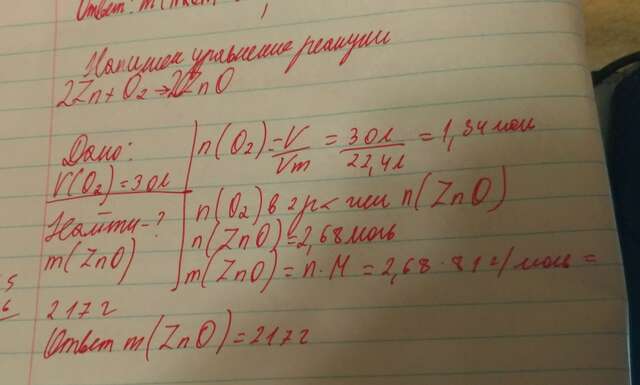 Ответ: m(
Напишем уравнение реакции
2Zn + O₂ → 2ZnO
Дано:
V(O₂) = 30л
Найти - ?
m(ZnO)
n(O₂) = V/Vm = 30л/22,4л = 1,34 моль
n(O₂) в 2 р < чем n(ZnO)
n(ZnO) = 2,68 моль
m(ZnO) = n · M = 2,68 · 81 г/моль =
217 г
Ответ m(ZnO) = 217 г
5
6